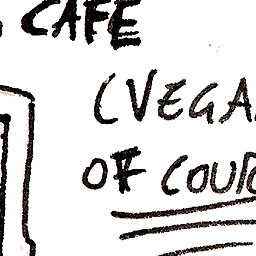 CAFE
(VEGA
OF COUR